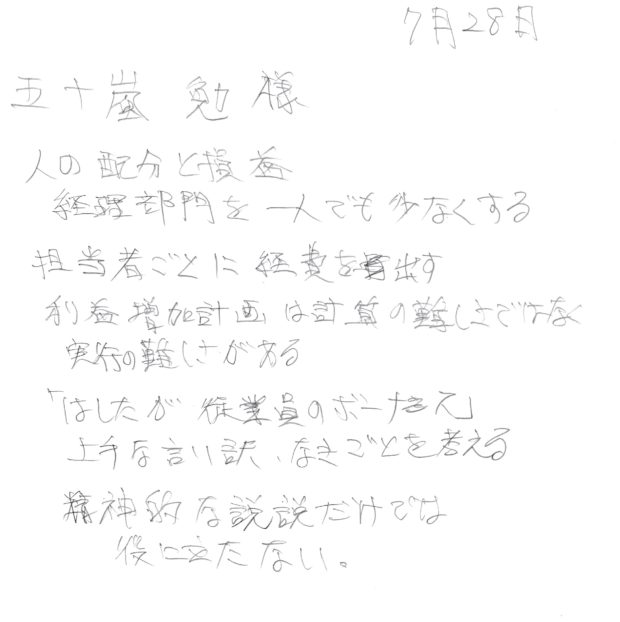 7月28日
五十嵐 勉 様
人の配分と損益
経理部門を一人でも少なくする
担当者ごとに経費を算出す
利益増加計画は計算の難しさではなく
実行の難しさがある
「はしたが 従業員のボーナスへ」
上手な言い訳、なきごとを考える
精神的な説説だけでは
役に立たない。